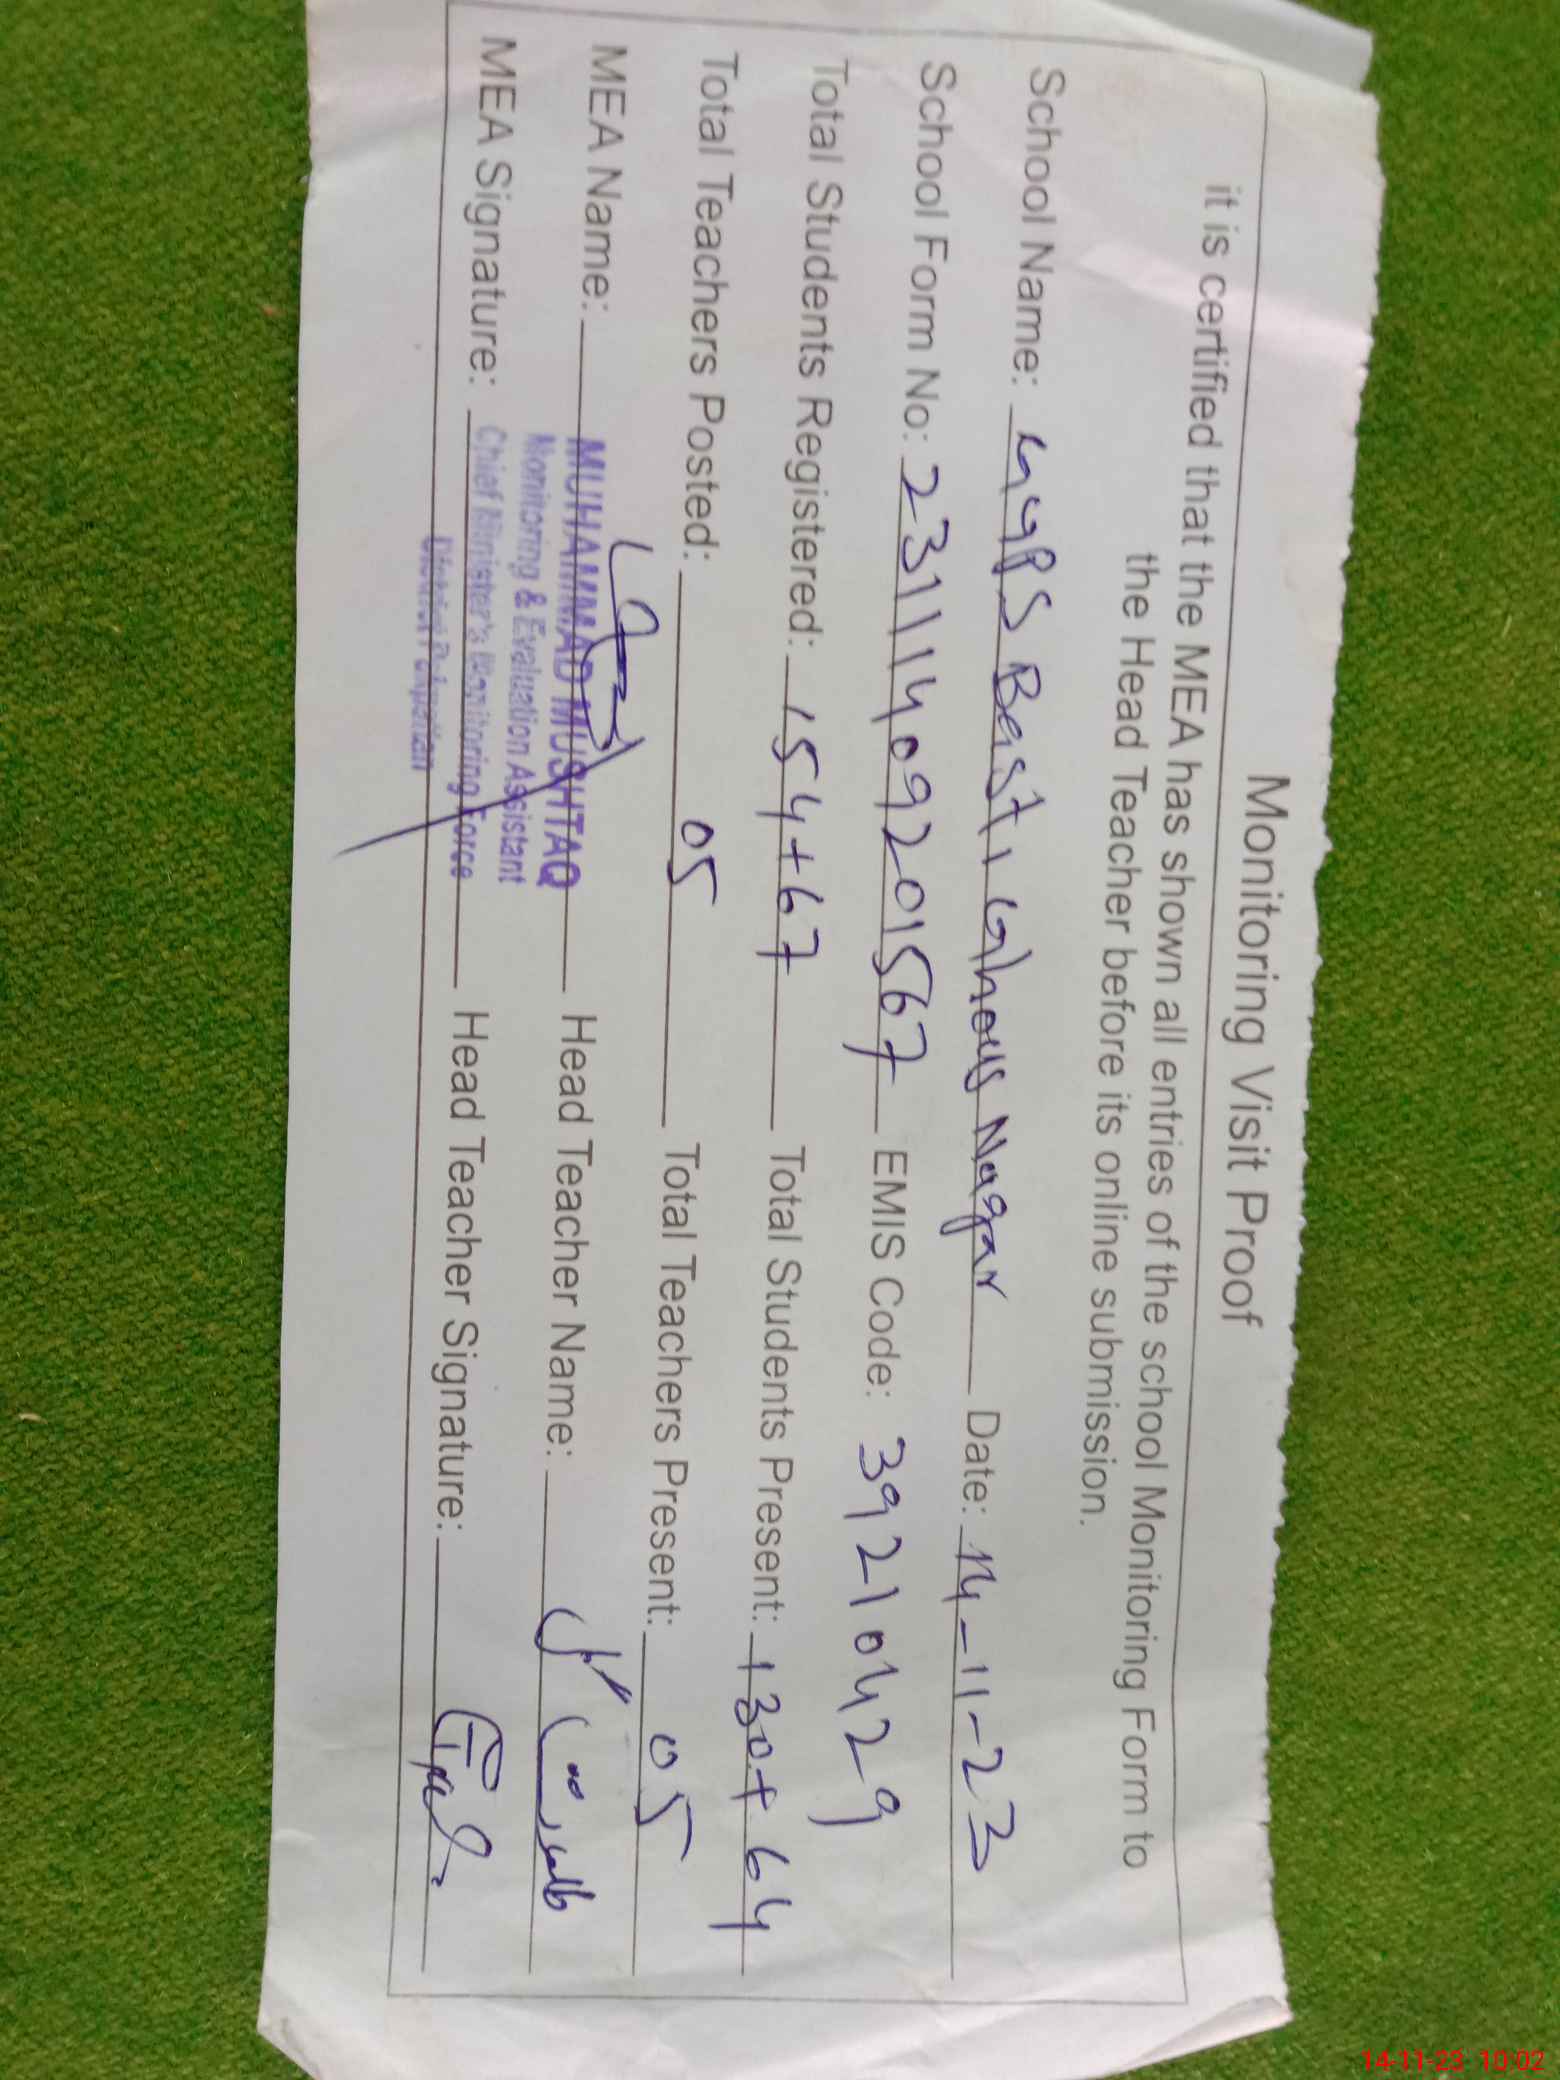 Monitoring Visit Proof
it is certified that the MEA has shown all entries of the school Monitoring Form to
the Head Teacher before its online submission.
School Name: GGPS Basti Ghous Nagar Date: 14-11-23
School Form No: 23111409201567 EMIS Code: 39210429
Total Students Registered: 154+67 Total Students Present: 130+64
Total Teachers Posted: 05 Total Teachers Present: 05
MEA Name: MUHAMMAD MUSHTAQ Head Teacher Name:
Monitoring & Evaluation Assistant
MEA Signature: Chief Minister's Monitoring Force Head Teacher Signature:
District Pakpattan
14-11-23 10:02